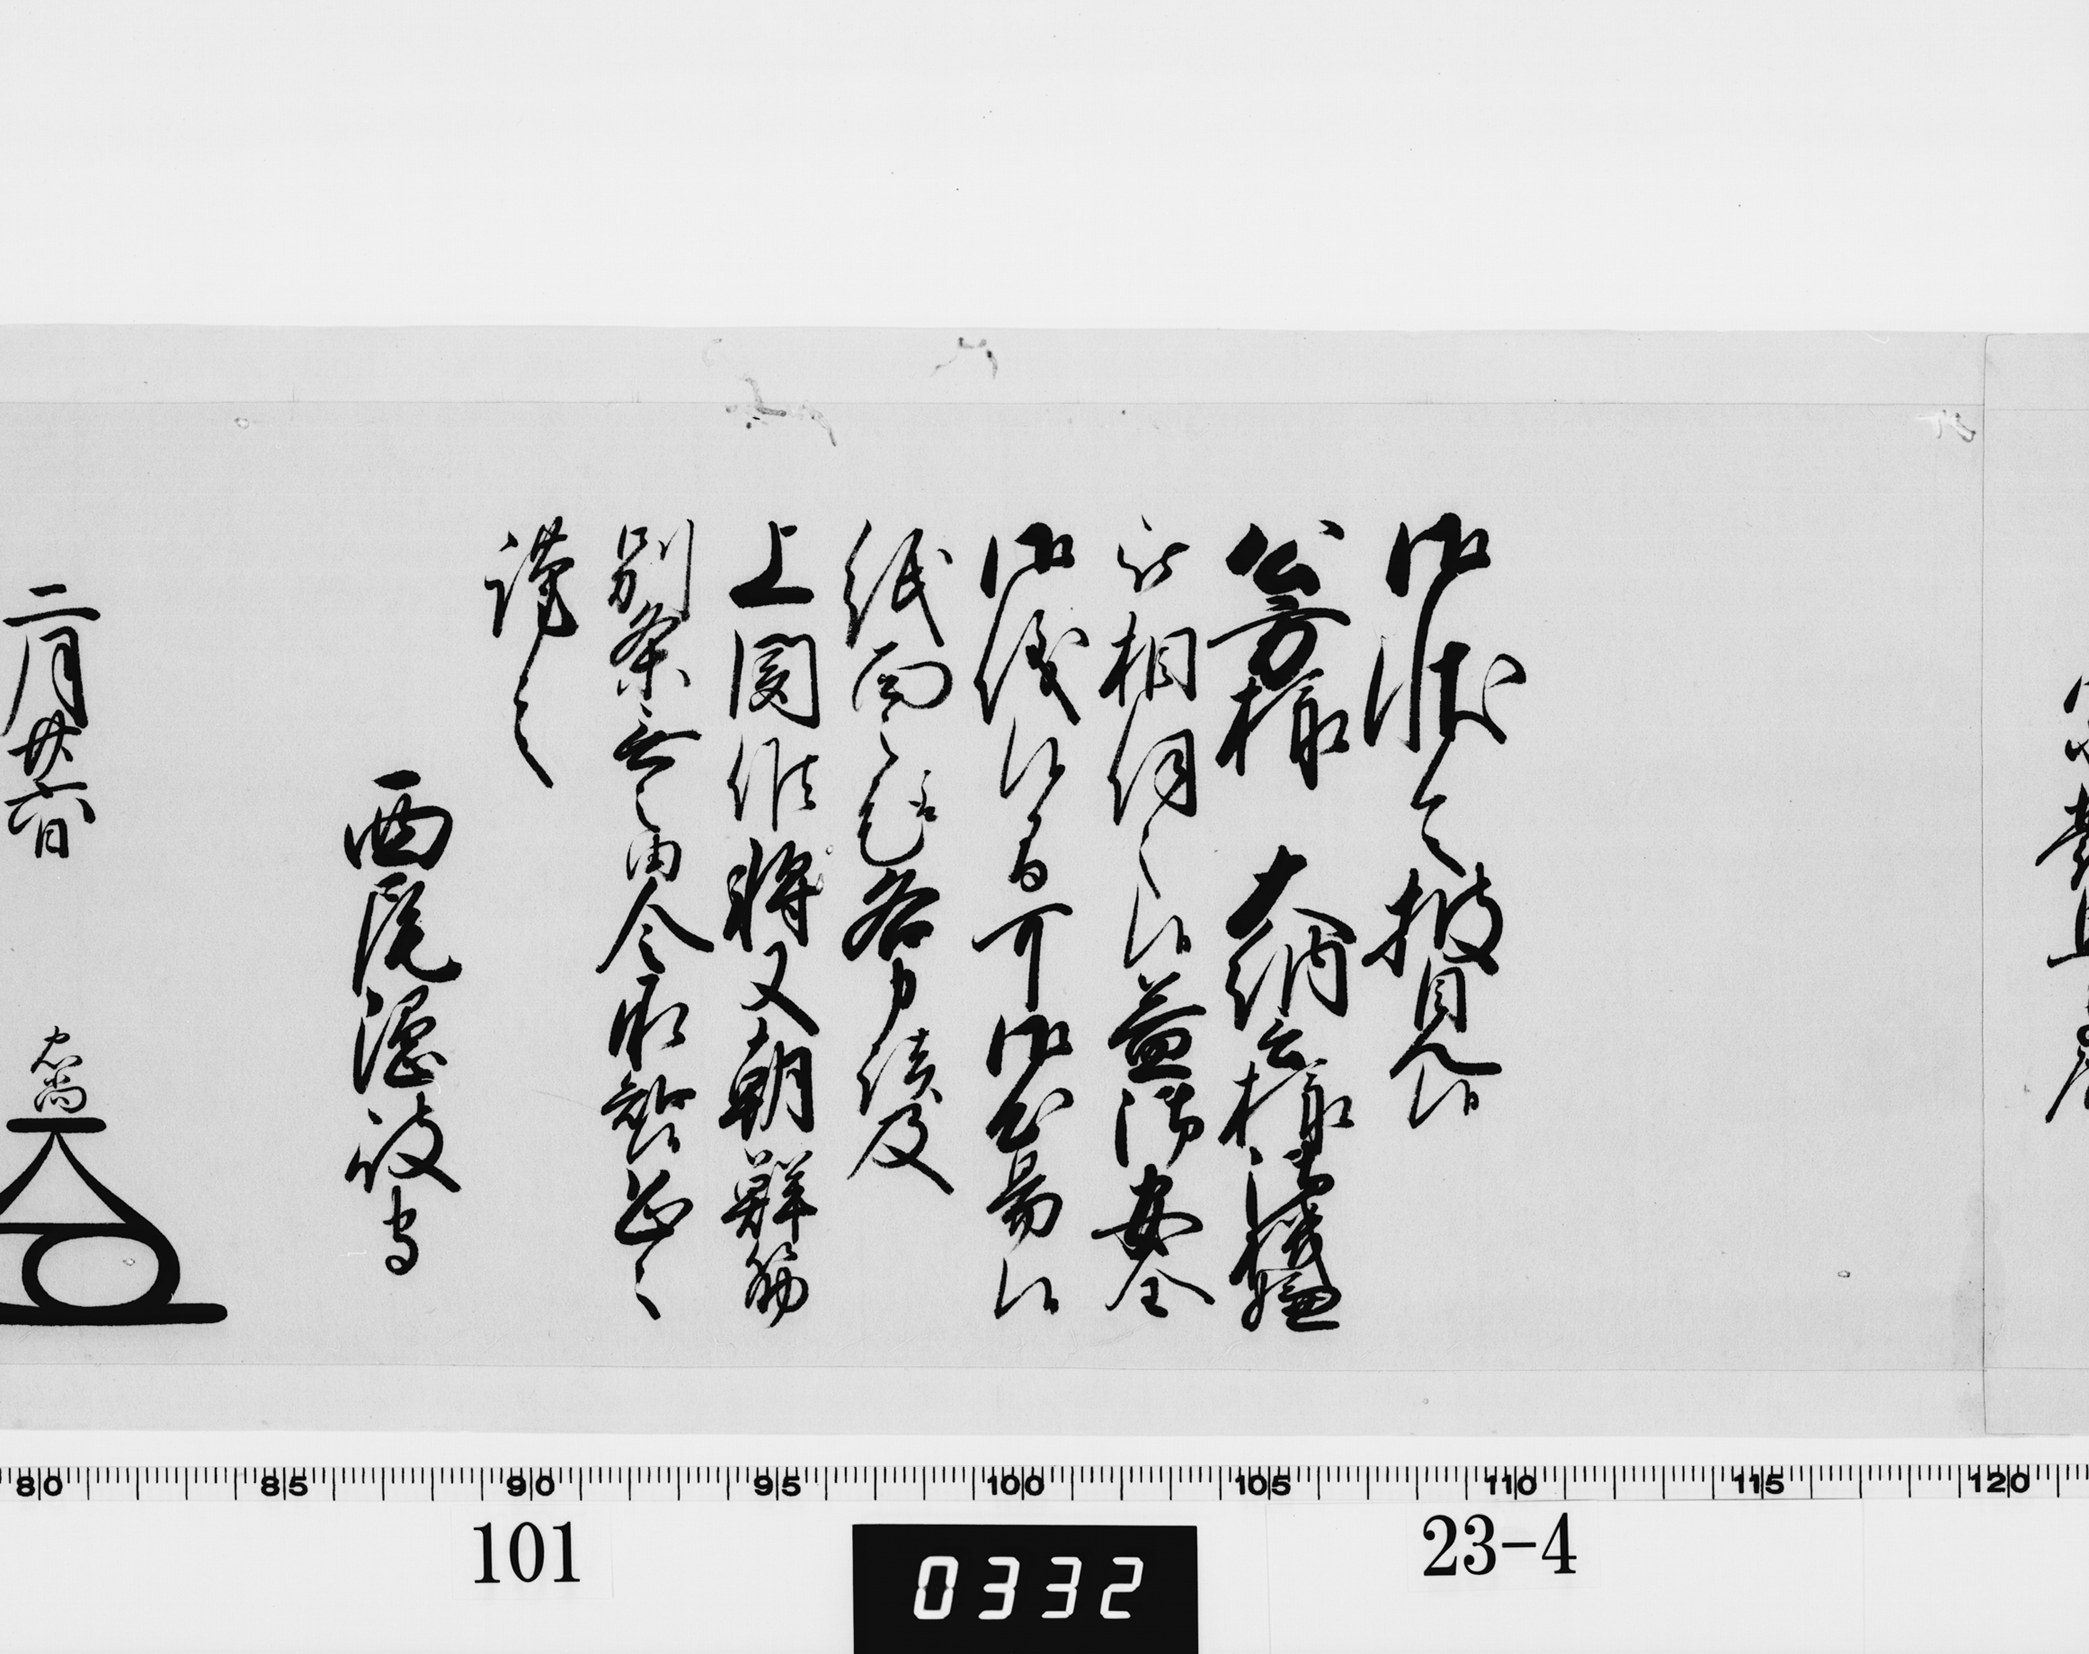 御状令披見候
公方様　大納言様御機嫌
被相伺之候益御安全
御儀候間可御心易候
紙面之趣各申談及
上聞候将又朝鮮筋
別条無之由令承知候恐々
謹言
西尾隠岐守
二月廿六日　忠尚
80 85 90 95 100 105 110 115 120
101
0332
23-4